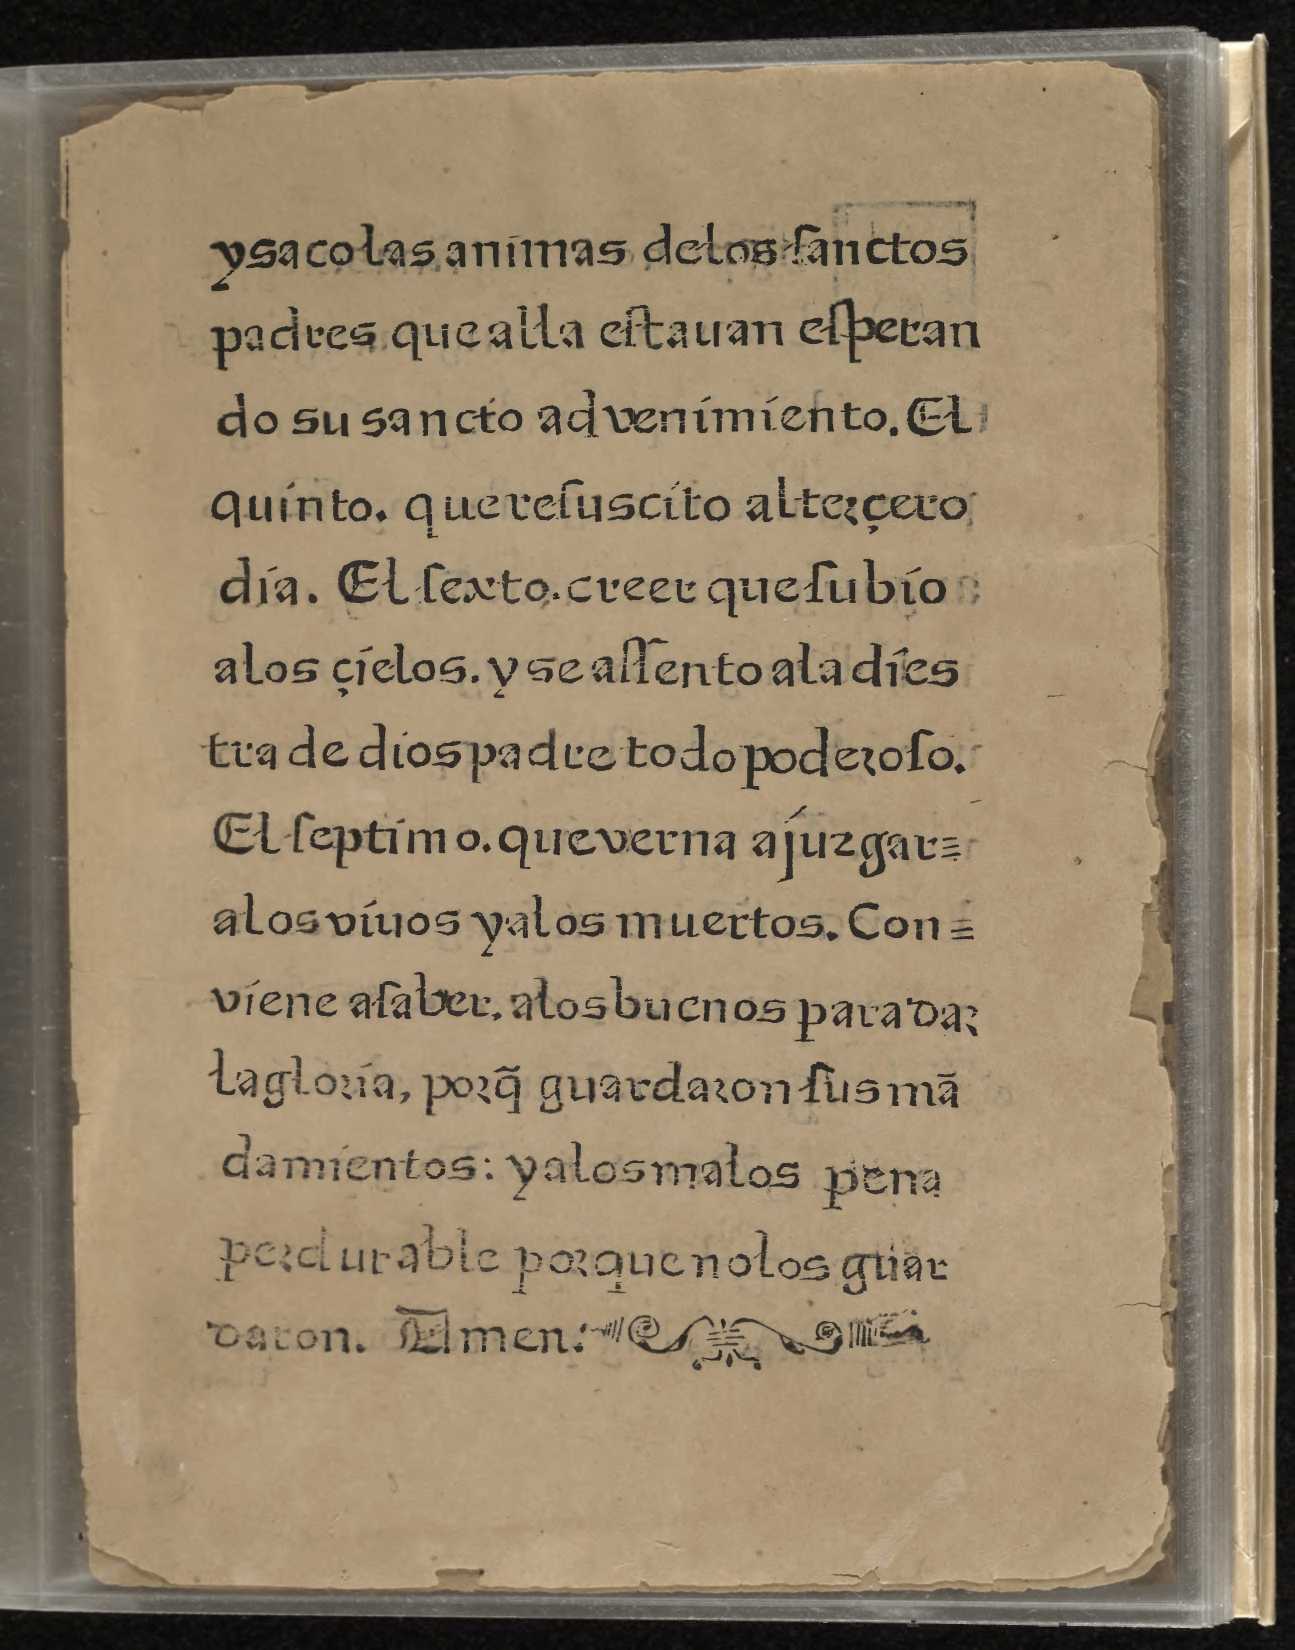 y saco las animas delos ſanctos
padres que alla eſtauan eſperan
do su sancto advenimiento. El
quinto. que reſuscito al terçero
dia. El ſexto. creer que ſubio
alos çielos. y se aſſento ala dies
tra de dios padre todo poderoſo.
El ſeptimo. que verna a juzgar=
alos viuos y alos muertos. Con=
viene aſaber. alos buenos para dar
la gloria, porq̃ guardaron ſus mã
damientos: y alos malos pena
perdurable porque no los guar
daron. Amen: